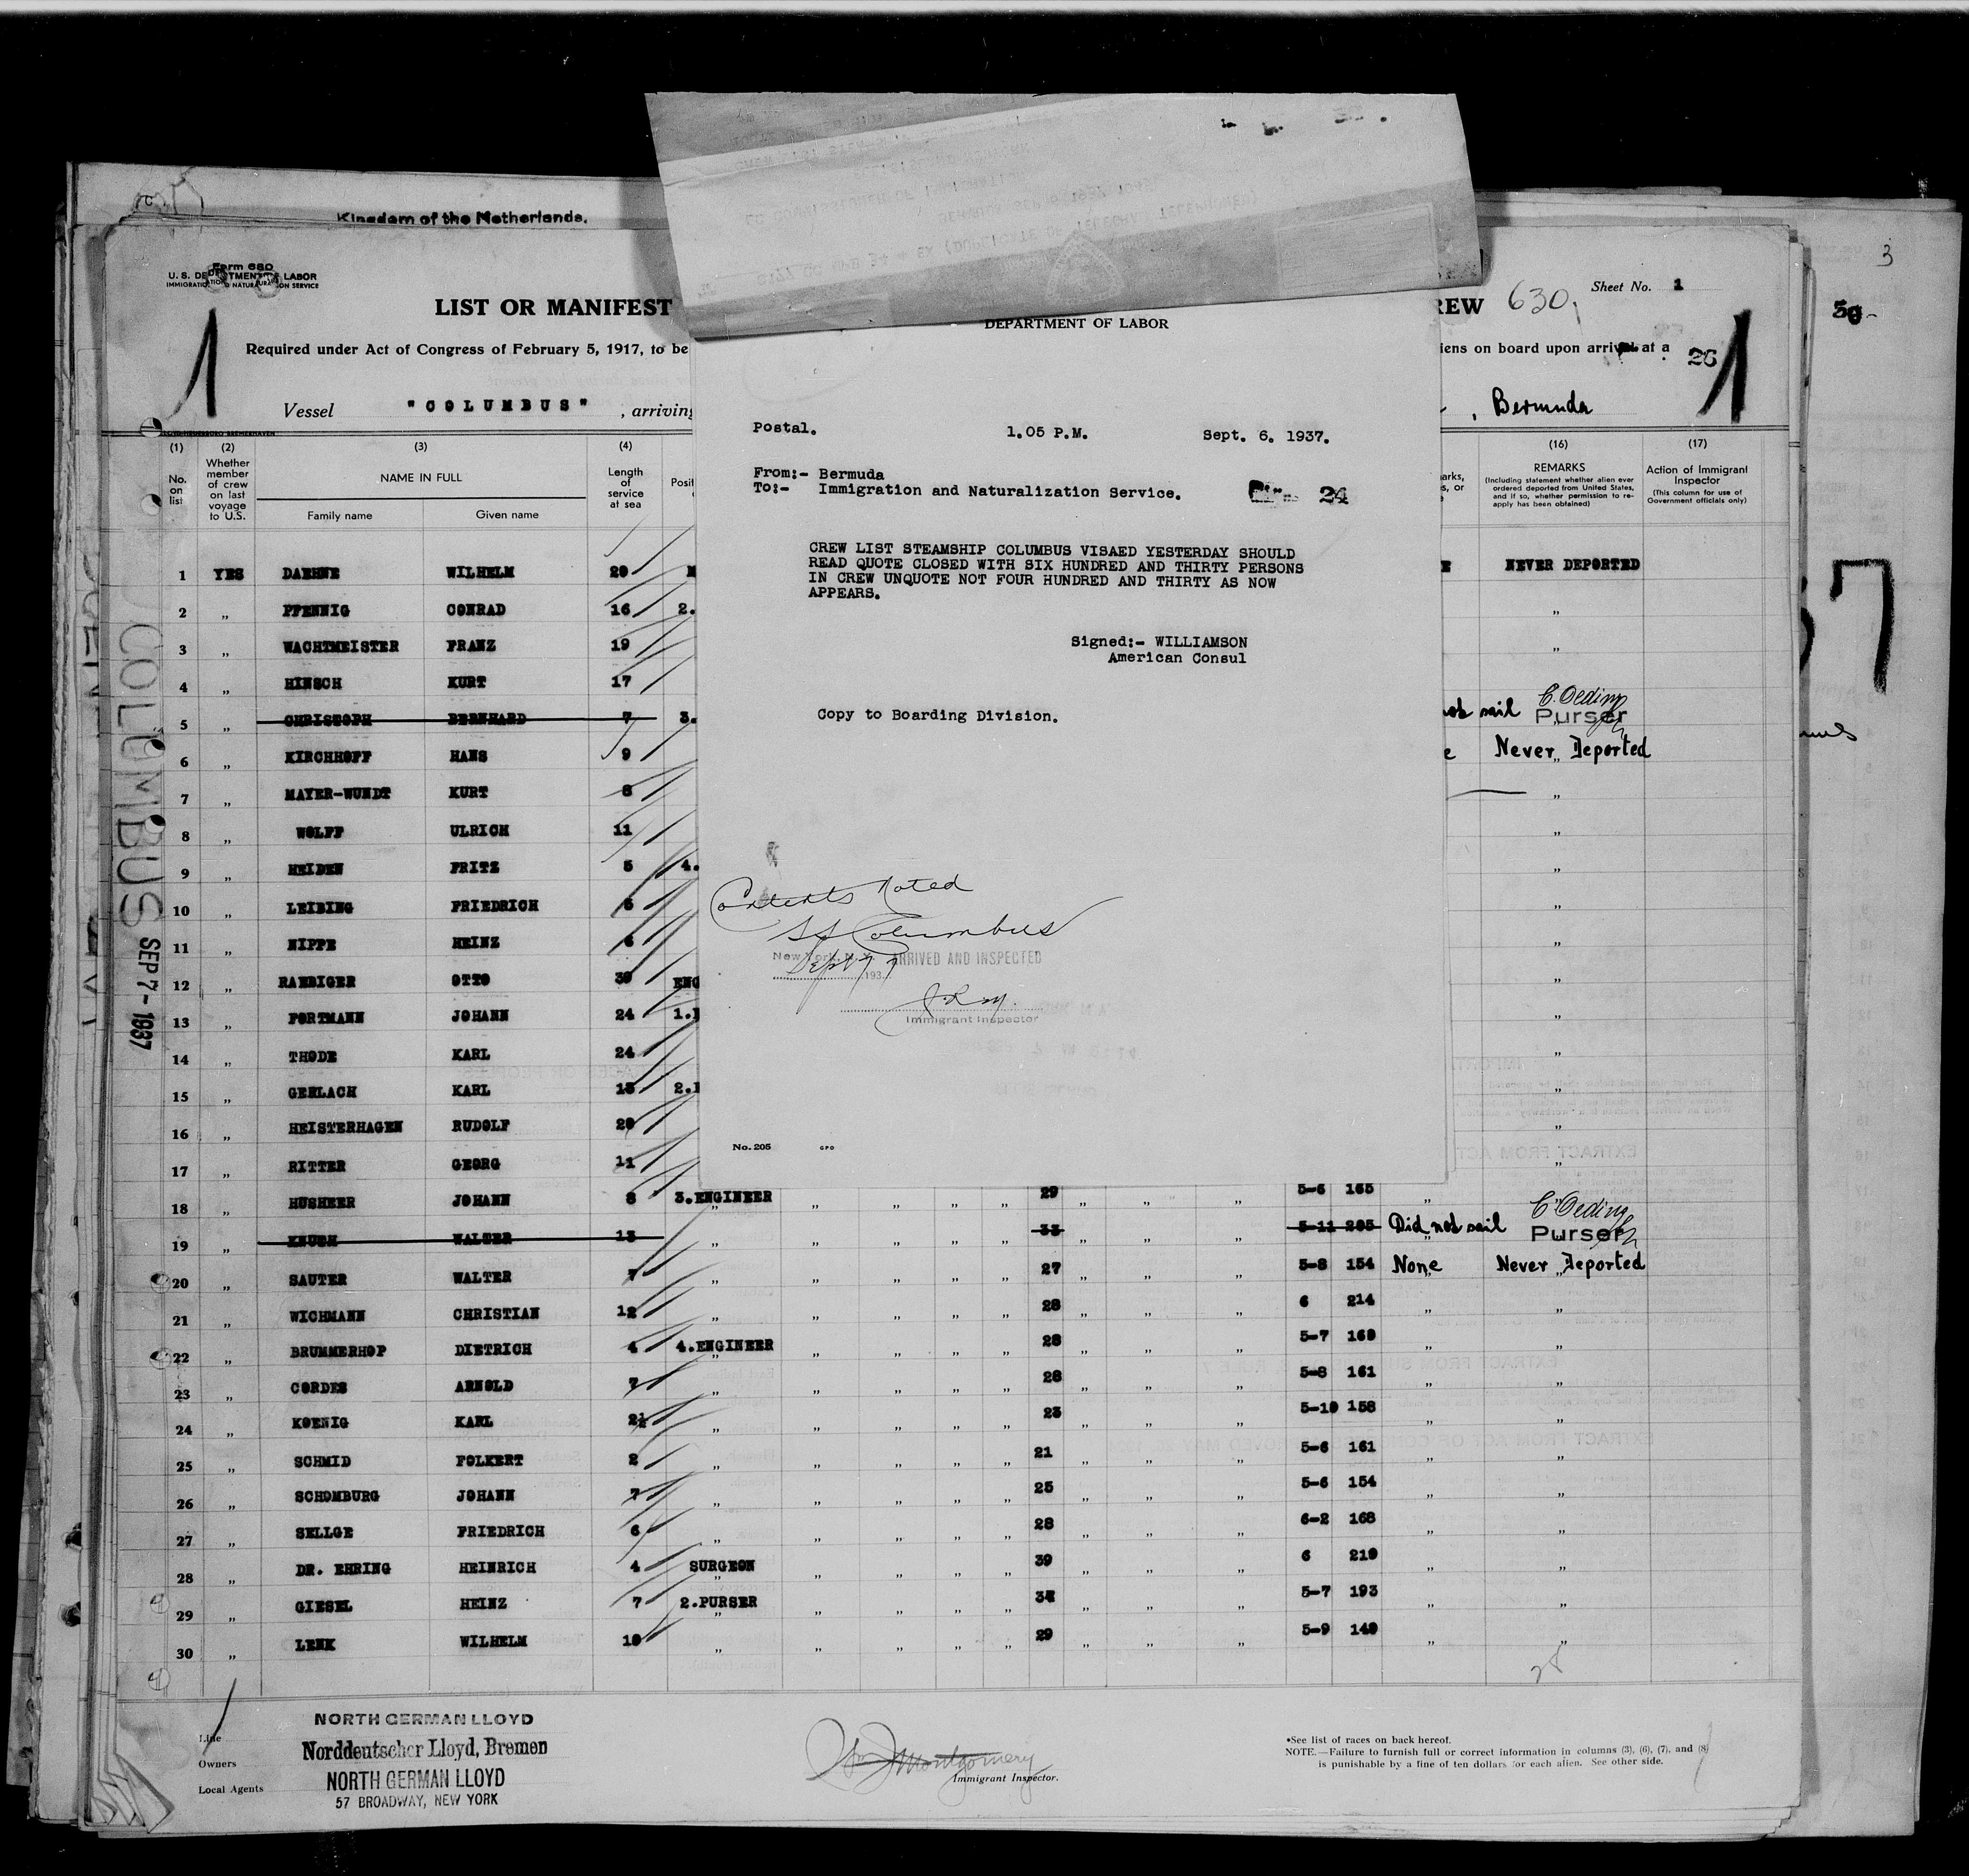 Kingdom of the Netherlands.
3
Form 680
U. S. DEPARTMENT OF LABOR
IMMIGRATION AND NATURALIZATION SERVICE
Sheet No. 1
LIST OR MANIFEST
REW 630.
30-
DEPARTMENT OF LABOR
1
Required under Act of Congress of February 5, 1917, to be
iens on board upon arrival at a
26
1
Vessel "COLUMBUS" , arriving
, Bermuda
(1) (2) (3) (4) (16) (17)
No. on list
Whether member of crew on last voyage to U.S.
NAME IN FULL
Family name Given name
Length of service at sea
Posit
arks,
s, or
REMARKS
(Including statement whether alien ever ordered deported from United States, and if so, whether permission to reapply has been obtained)
Action of Immigrant Inspector
(This column for use of Government officials only)
Postal. 1.05 P.M. Sept. 6. 1937.
From:- Bermuda
To:- Immigration and Naturalization Service.
24
CREW LIST STEAMSHIP COLUMBUS VISAED YESTERDAY SHOULD
READ QUOTE CLOSED WITH SIX HUNDRED AND THIRTY PERSONS
IN CREW UNQUOTE NOT FOUR HUNDRED AND THIRTY AS NOW
APPEARS.
Signed:- WILLIAMSON
American Consul
Copy to Boarding Division.
Contents Noted
SS Columbus
New York, ARRIVED AND INSPECTED
Sept 7 1937
J.R.M.
Immigrant Inspector
No. 205 GPO
COLUMBUS
SEP 7-1937
1 YES DAEHNE WILHELM 29 M E NEVER DEPORTED
2 „ PFENNIG CONRAD 16 2. „
3 „ WACHTMEISTER FRANZ 19 „
4 „ HINSCH KURT 17
5 „ CHRISTOPH BERNHARD 7 3. not sail C. Oeding Purser
6 „ KIRCHHOFF HANS 9 e Never Deported
7 „ MAYER-WUNDT KURT 8 „
8 „ WOLFF ULRICH 11 „
9 „ HEIDEN FRITZ 5 4. „
10 „ LEIBING FRIEDRICH 5 „
11 „ NIPPE HEINZ 6 „
12 „ RAEDIGER OTTO 30 ENG „
13 „ FORTMANN JOHANN 24 1. „
14 „ THODE KARL 24 „
15 „ GERLACH KARL 15 2. „
16 „ HEISTERHAGEN RUDOLF 20 „
17 „ RITTER GEORG 11 „
18 „ HUSHEER JOHANN 8 3.ENGINEER „ „ „ „ 29 „ „ „ 5-6 165 „
19 „ KNUSH WALTER 13 „ „ „ „ „ 33 „ „ „ 5-11 205 Did not sail C. Oeding Purser
20 „ SAUTER WALTER 7 „ „ „ „ „ 27 „ „ „ 5-8 154 None Never Deported
21 „ WICHMANN CHRISTIAN 12 „ „ „ „ „ 28 „ „ „ 6 214 „ „
22 „ BRUMMERHOP DIETRICH 4 4.ENGINEER „ „ „ „ 28 „ „ „ 5-7 169 „ „
23 „ CORDES ARNOLD 7 „ „ „ „ „ 28 „ „ „ 5-8 161 „ „
24 „ KOENIG KARL 2½ „ „ „ „ „ 23 „ „ „ 5-10 158 „ „
25 „ SCHMID FOLKERT 2 „ „ „ „ „ 21 „ „ „ 5-6 161 „ „
26 „ SCHOMBURG JOHANN 7 „ „ „ „ „ 25 „ „ „ 5-6 154 „ „
27 „ SELLGE FRIEDRICH 6 „ „ „ „ „ 28 „ „ „ 6-2 168 „ „
28 „ DR. EHRING HEINRICH 4 SURGEON „ „ „ „ 39 „ „ „ 6 210 „ „
29 „ GIESEL HEINZ 7 2.PURSER „ „ „ „ 34 „ „ „ 5-7 193 „ „
30 „ LENK WILHELM 10 „ „ „ „ „ 29 „ „ „ 5-9 149 „ „
28
Line NORTH GERMAN LLOYD
Owners Norddeutscher Lloyd, Bremen
Local Agents NORTH GERMAN LLOYD
57 BROADWAY, NEW YORK
Montgomery
Immigrant Inspector.
*See list of races on back hereof.
NOTE.—Failure to furnish full or correct information in columns (3), (6), (7), and (8)
is punishable by a fine of ten dollars for each alien. See other side.